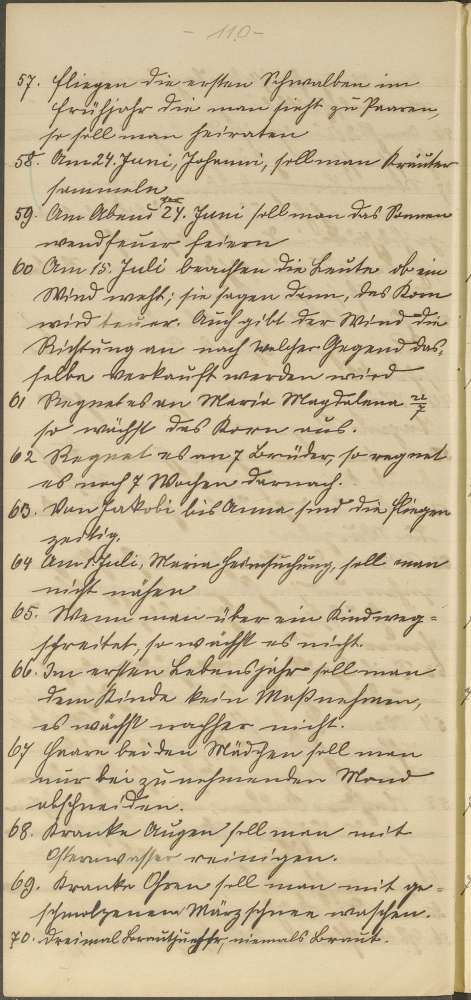 - 110 -
57. Fliegen die ersten Schwalben im
Frühjahr die man sieht zu Paaren,
so soll man heiraten
58. Am 24. Juni, Johanni, soll man Kräuter
sammeln
59. Am Abend des 24. Juni soll man das Sonnen
wendfeuer feiern
60 Am 15. Juli beachten die Leute ob ein
Wind weht; sie sagen dann, das Korn
wird teuer. Auch gibt der Wind die
Richtung an nach welcher Gegend das-
selbe verkauft werden wird
61 Regnet es an Maria Magdalena 22/7
so wächst das Korn aus.
62 Regnet es an 7 Brüder, so regnet
es noch 7 Wochen darnach.
63. Von Jakobi bis Anna sind die Fliegen
zeitig.
64 Am Juli, Maria Heimsuchung, soll man
nicht nähen
65. Wenn man über ein Kind weg-
schreitet, so wächst es nicht.
66. Im ersten Lebensjahr soll man
dem Kinde kein Maß nehmen,
es wächst nachher nicht.
67 Haare bei den Mädchen soll man
nur bei zunehmenden Mond
abschneiden.
68. Kranke Augen soll man mit
Osterwasser reinigen.
69. Kranke Ohren soll man mit ge-
schmolzenem Märzschnee waschen.
70. Dreimal Brautjungfer, niemals Braut.